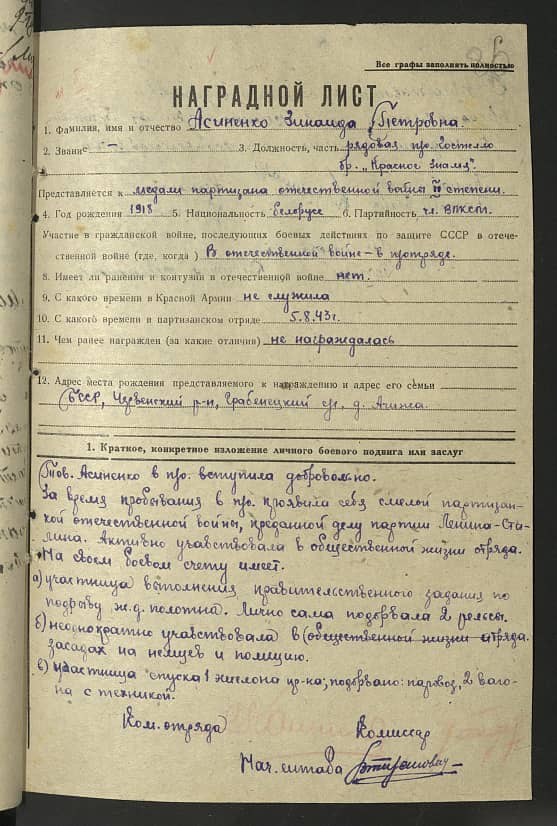 Все графы заполнять полностью
НАГРАДНОЙ ЛИСТ
1. Фамилия, имя и отчество Асиненко Зинаида Петровна
2. Звание - 3. Должность, часть рядовая п/о. Гостелло
бр. „Красное Знамя".
Представляется к медали партизана отечественной войны II степени.
4. Год рождения 1918 5. Национальность белорусс 6. Партийность чл. ВЛКСМ.
Участие в гражданской войне, последующих боевых действиях по защите СССР в отече-
ственной войне (где, когда) В отечественной войне - в п/отряде.
8. Имеет ли ранения и контузии в отечественной войне нет.
9. С какого времени в Красной Армии не служила
10. С какого времени в партизанском отряде 5.8.43г.
11. Чем ранее награжден (за какие отличия) не награждалась
12. Адрес места рождения представляемого к награждению и адрес его семьи
БССР, Червенский р-н, Грабенецкий с/с. д.
1. Краткое, конкретное изложение личного боевого подвига или заслуг
Тов. Асиненко в п/о. вступила добровольно.
За время пребывания в п/о. проявила себя смелой партизан-
кой отечественной войны, преданной делу партии Ленина-Ста-
лина. Активно учавствовала в общественной жизни отряда.
На своем боевом счету имеет.
а) участница выполнения правительственного задания по
подрыву ж.д. полотна. Лично сама подорвала 2 рельсы.
б) неоднократно учавствовала в (общественной жизни отряда.
засадах на немцев и полицию.
в) участница спуска 1 эшелона пр-ка; подорвано: паровоз, 2 ваго-
на с техникой.
Ком. отряда Комиссар
Нач. штаба